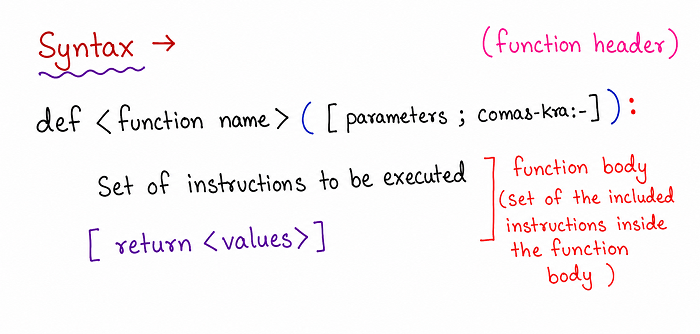 Syntax → (function header)
def <function name> ( [ parameters ; comas-kra:- ] ) :
Set of instructions to be executed
[ return <values> ]
function body
(set of the included
instructions inside
the function
body )